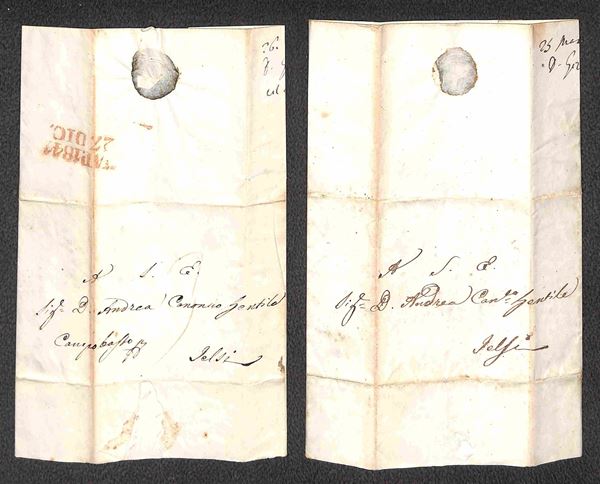 26.
D.
27. DIC.
A S. E.
Sig.r D. Andrea Canonico Gentile
Campobasso p
Jelsi
25 Mar
D. Gen
A S. E.
Sig.r D. Andrea Can.co Gentile
Jelsi